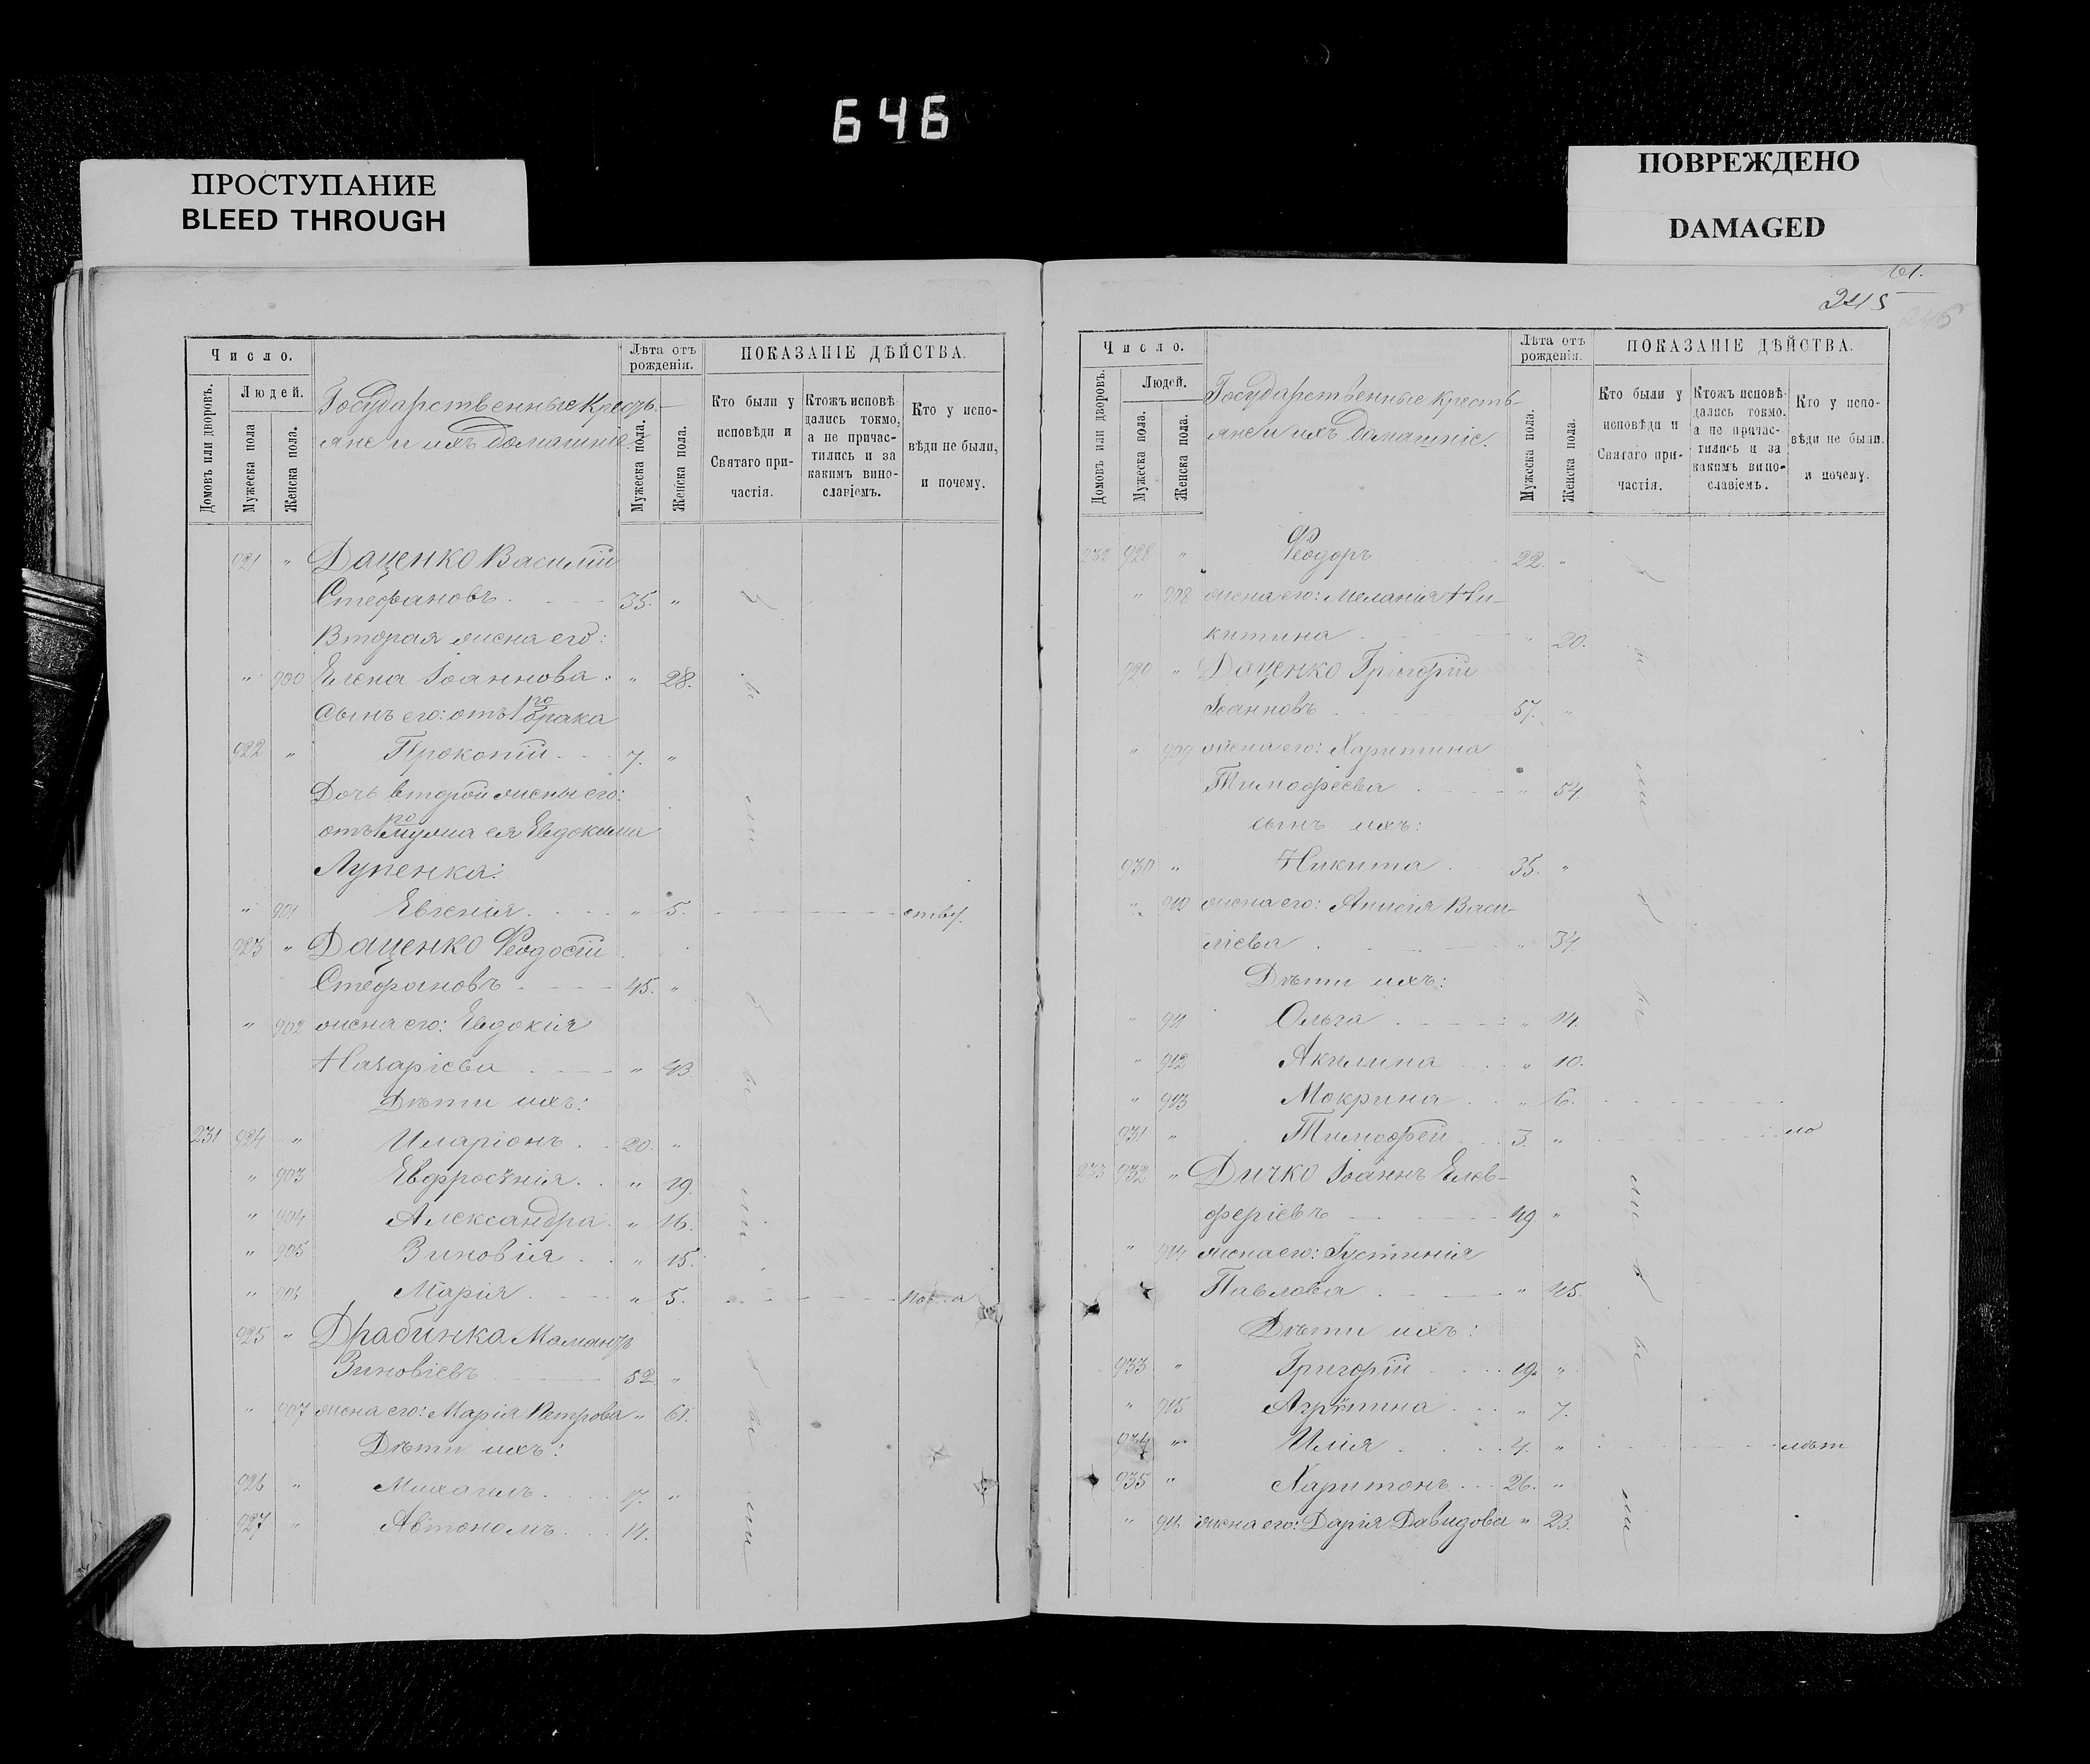 646
ПРОСТУПАНИЕ
BLEED THROUGH
ПОВРЕЖДЕНО
DAMAGED
61.
245
246
Число.
Людей.
Домовъ или дворовъ.
Мужеска пола
Женска пола.
Государственные Кресть-
яне и ихъ домашніе.
Лѣта отъ рожденія.
Мужеска пола.
Женска пола.
ПОКАЗАНІЕ ДѢЙСТВА.
Кто были у исповѣди и Святаго причастія.
Ктожъ исповѣдались токмо, а не причастились и за какимъ винословіемъ.
Кто у исповѣди не были, и почему.
921 " Даценко Василій
Стефановъ 35. "
Вторая жена его:
" 900 Елена Іоаннова " 28.
Сынъ его: отъ 1го брака
922 " Прокопій 7. "
Дочь второй жены его:
отъ 1го мужа ея Евдокима
Лупенка:
" 901 Евгенія " 5.
923 " Даценко Ѳеодосій
Стефановъ 45. "
" 902 жена его: Евдокія
Назаріева " 43
Дѣти ихъ:
231 924 " Иларіонъ 20. "
" 903 Евфросинія " 19.
" 904 Александра " 16.
" 905 Зиновія " 15.
" 906 Марія " 5.
925 " Драбинка
Зиновіевъ 52. "
" 907 жена его: Марія Петрова " 61.
Дѣти ихъ:
926 " Михаилъ 17. "
927 " Автономъ 14.
были
были
были
Число.
Людей.
Домовъ или дворовъ.
Мужеска пола.
Женска пола.
Государственные Кресть-
яне и ихъ домашніе.
Лѣта отъ рожденія.
Мужеска пола.
Женска пола.
ПОКАЗАНІЕ ДѢЙСТВА.
Кто были у исповѣди и Святаго причастія.
Ктожъ исповѣдались токмо, а не причастились и за какимъ винословіемъ.
Кто у исповѣди не были, и почему.
232 928 " Ѳеодоръ 22. "
" 908 жена его: Меланія Ни-
китина " 20.
929 " Даценко Григорій
Іоанновъ 57. "
" 909 жена его: Харитина
Тимофеева " 54.
сынъ ихъ:
930 " Никита 35. "
" 910 жена его: Анисія Васи-
ліева " 34.
Дѣти ихъ:
" 911 Ольга " 14.
" 912 Акилина " 10.
" 913 Мокрина " 6.
931 " Тимофей 3. "
233 932 " Дичко Іоаннъ Елев-
феріевъ 49. "
" 914 жена его: Іустинія
Павлова " 45.
Дѣти ихъ:
933 " Григорій 19. "
" 915 Агрипина " 7.
934 " Илія 4. "
935 " Харитонъ 26. "
" 916 жена его: Дарія Давидова " 23.
были
были
лѣт